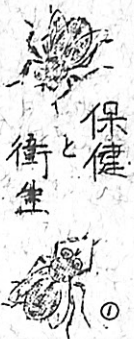 保健
と
衛生
①